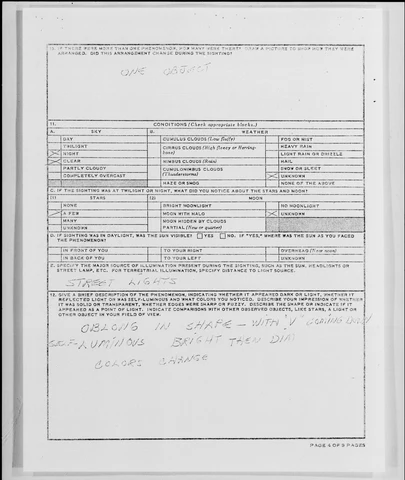 IF THERE WERE MORE THAN ONE PHENOMENON, HOW MANY WERE THERE? DRAW A PICTURE TO SHOW HOW THEY WERE
ARRANGED. DID THIS ARRANGEMENT CHANGE DURING THE SIGHTING?
ONE OBJECT
11. CONDITIONS (Check appropriate blocks.)
A. SKY B. WEATHER
DAY CUMULUS CLOUDS (Low fluffy) FOG OR MIST
TWILIGHT CIRRUS CLOUDS (High fleecy or Herring-bone) HEAVY RAIN
NIGHT LIGHT RAIN OR DRIZZLE
CLEAR NIMBUS CLOUDS (Rain) HAIL
PARTLY CLOUDY CUMULONIMBUS CLOUDS (Thunderstorms) SNOW OR SLEET
COMPLETELY OVERCAST UNKNOWN
HAZE OR SMOG NONE OF THE ABOVE
C. IF THE SIGHTING WAS AT TWILIGHT OR NIGHT, WHAT DID YOU NOTICE ABOUT THE STARS AND MOON?
(1) STARS (2) MOON
NONE BRIGHT MOONLIGHT NO MOONLIGHT
A FEW MOON WITH HALO UNKNOWN
MANY MOON HIDDEN BY CLOUDS
UNKNOWN PARTIAL (New or quarter)
D. IF SIGHTING WAS IN DAYLIGHT, WAS THE SUN VISIBLE? YES NO. IF "YES," WHERE WAS THE SUN AS YOU FACED
THE PHENOMENON?
IN FRONT OF YOU TO YOUR RIGHT OVERHEAD (Near noon)
IN BACK OF YOU TO YOUR LEFT UNKNOWN
E. SPECIFY THE MAJOR SOURCE OF ILLUMINATION PRESENT DURING THE SIGHTING, SUCH AS THE SUN, HEADLIGHTS OR
STREET LAMP, ETC. FOR TERRESTRIAL ILLUMINATION, SPECIFY DISTANCE TO LIGHT SOURCE.
STREET LIGHTS
12. GIVE A BRIEF DESCRIPTION OF THE PHENOMENON, INDICATING WHETHER IT APPEARED DARK OR LIGHT, WHETHER IT
REFLECTED LIGHT OR WAS SELF-LUMINOUS AND WHAT COLORS YOU NOTICED. DESCRIBE YOUR IMPRESSION OF WHETHER
IT WAS SOLID OR TRANSPARENT, WHETHER EDGES WERE SHARP OR FUZZY. DESCRIBE THE SHAPE OR INDICATE IF IT
APPEARED AS A POINT OF LIGHT. INDICATE COMPARISONS WITH OTHER OBSERVED OBJECTS, LIKE STARS, A LIGHT OR
OTHER OBJECT IN YOUR FIELD OF VIEW.
OBLONG IN SHAPE - WITH "V" COMING DOWN
SELF-LUMINOUS BRIGHT THEN DIM
COLORS CHANGE
PAGE 4 OF 5 PAGES